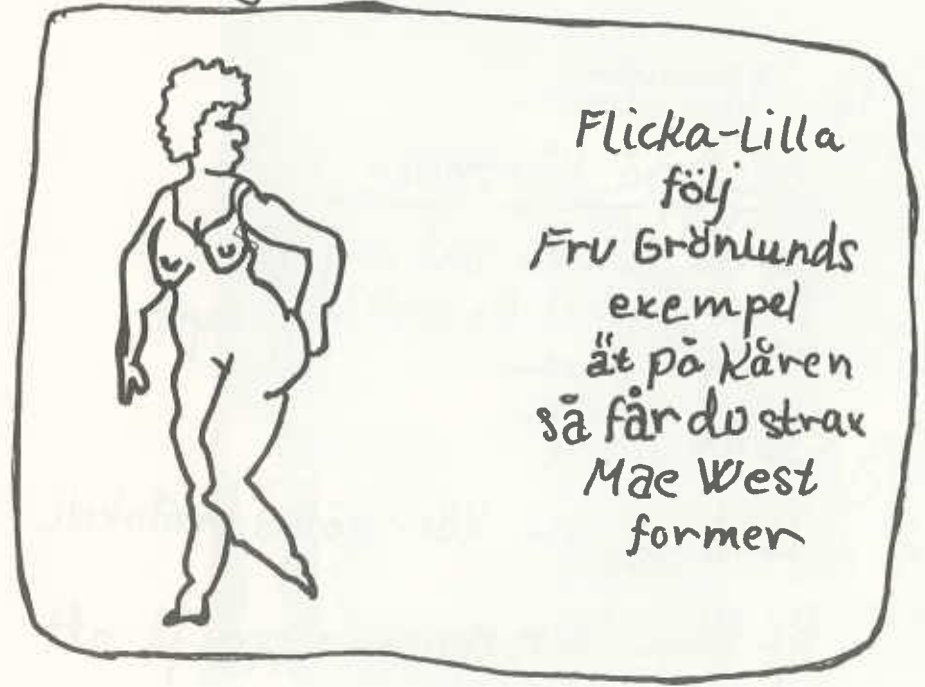 Flicka-Lilla
följ
Fru Grönlunds
exempel
ät på Kåren
så får du strax
Mae West
former